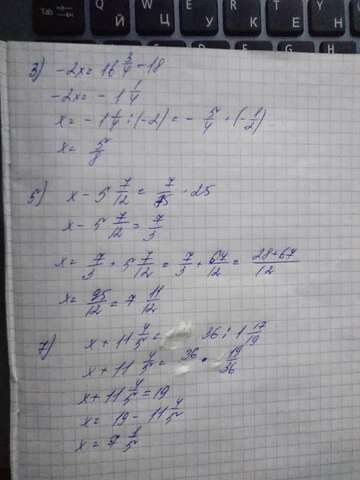 3) -2x = 16 3/4 - 18
-2x = -1 1/4
x = -1 1/4 : (-2) = - 5/4 · (- 1/2)
x = 5/8
5) x - 5 7/12 = 7/75 · 25
x - 5 7/12 = 7/3
x = 7/3 + 5 7/12 = 7/3 + 67/12 = 28+67/12
x = 95/12 = 7 11/12
7) x + 11 4/5 = 36 : 1 17/19
x + 11 4/5 = 36 · 19/36
x + 11 4/5 = 19
x = 19 - 11 4/5
x = 7 1/5